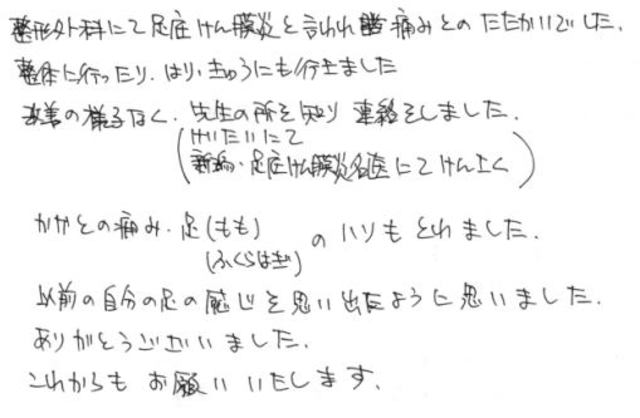 整形外科にて足底けん膜炎と言われ 痛みとのたたかいでした.
整体に行ったり. はり. きゅうにも行きました
改善の様子なく. 先生の所を知り 連絡をしました.
(けいたいにて
新潟・足底けん膜炎名医にてけんさく)
かかとの痛み. 足(もも)のハリもとれました.
(ふくらはぎ)
以前の自分の足の感じを思い出たように思いました.
ありがとうございました.
これからもお願いいたします.